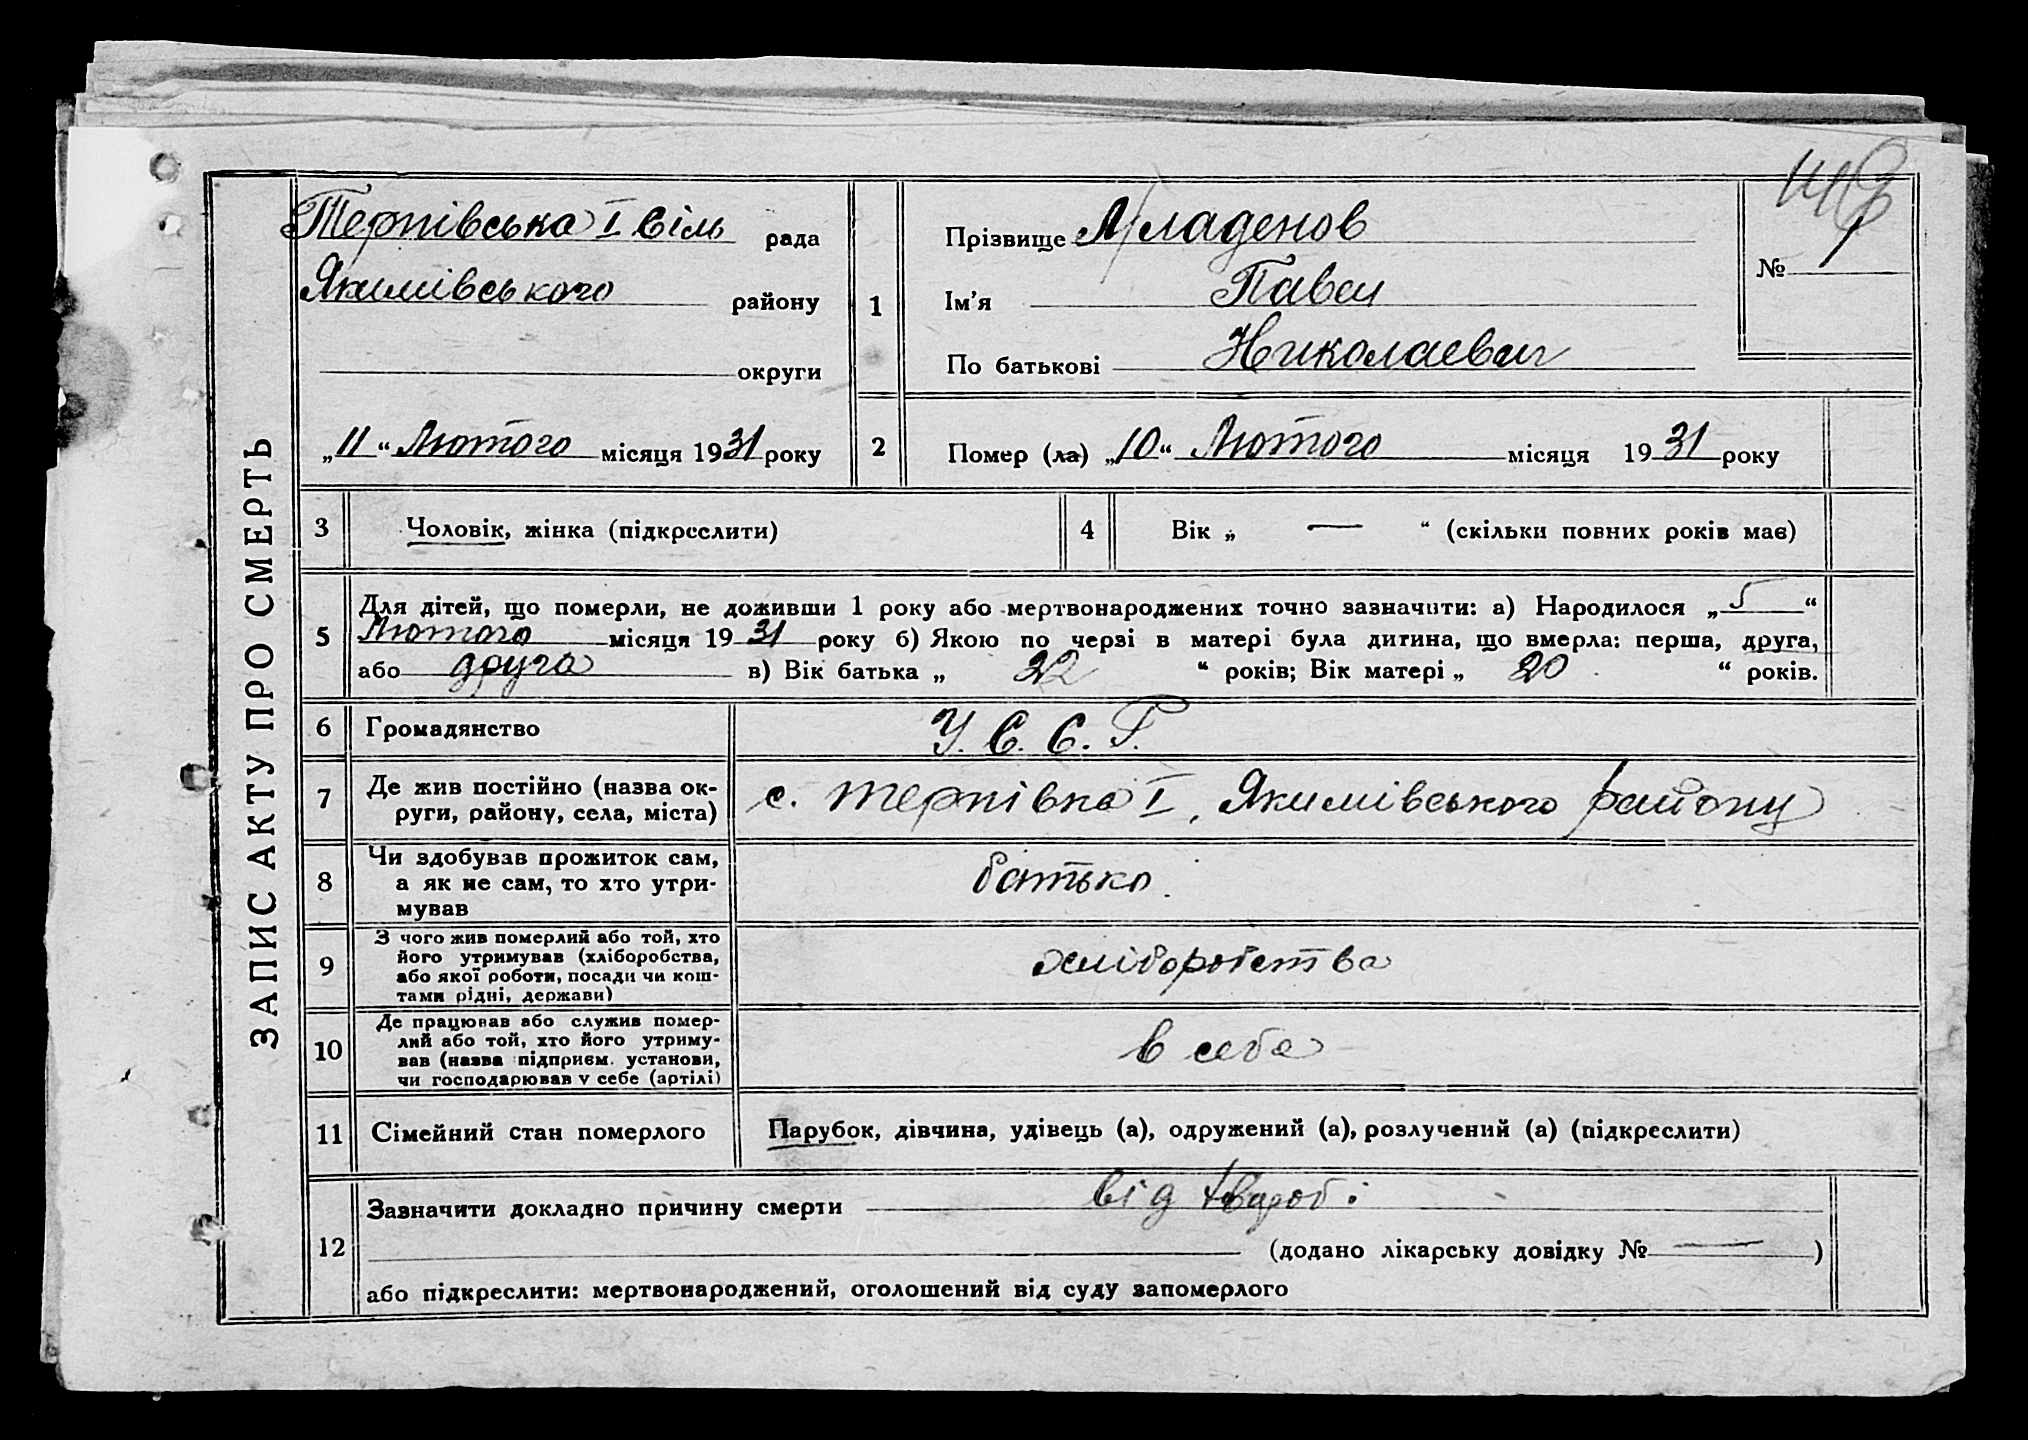 ЗАПИС АКТУ ПРО СМЕРТЬ
Терпівська I віль рада
Якимівського району
округи
„11“ Лютого місяця 1931 року
1
Прізвище Младенов
Ім'я Павел
По батькові Николаевич
№ 9
2
Помер (ла) „10“ Лютого місяця 1931 року
3
Чоловік, жінка (підкреслити)
4
Вік „ — “ (скільки повних років має)
5
Для дітей, що померли, не доживши 1 року або мертвонароджених точно зазначити: а) Народилося „5“
Лютого місяця 1931 року б) Якою по черзі в матері була дитина, що вмерла: перша, друга,
або друга в) Вік батька „ 22 “ років; Вік матері „ 20 “ років.
6
Громадянство
У. С. С. Р.
7
Де жив постійно (назва ок-
руги, району, села, міста)
с. Терпівка I, Якимівського району
8
Чи здобував прожиток сам,
а як не сам, то хто утри-
мував
батько
9
З чого жив померлий або той, хто
його утримував (хліборобства,
або якої роботи, посади чи кош-
тами рідні, держави)
хліборобства
10
Де працював або служив помер-
лий або той, хто його утриму-
вав (назва підприєм. установи,
чи господарював у себе (артілі)
в себе
11
Сімейний стан померлого
Парубок, дівчина, удівець (а), одружений (а), розлучений (а) (підкреслити)
12
Зазначити докладно причину смерти від хвороб і
(додано лікарську довідку № — )
або підкреслити: мертвонароджений, оголошений від суду запомерлого